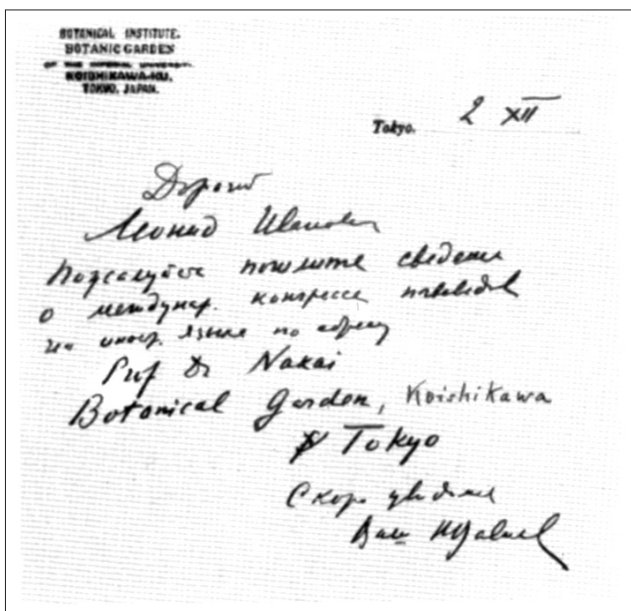 BOTANICAL INSTITUTE.
BOTANIC GARDEN
OF THE IMPERIAL UNIVERSITY.
KOISHIKAWA-KU,
TOKYO, JAPAN.
Tokyo. 2 XII
Дорогой
Леонид Иванович
Пожалуйста пошлите сведения
о междунар. конгрессе почвоведов
на иностр. языке по адресу
Prof Dr Nakai
Botanical Garden, Koishikawa
Tokyo
Скоро увидимся
Ваш НВавилов